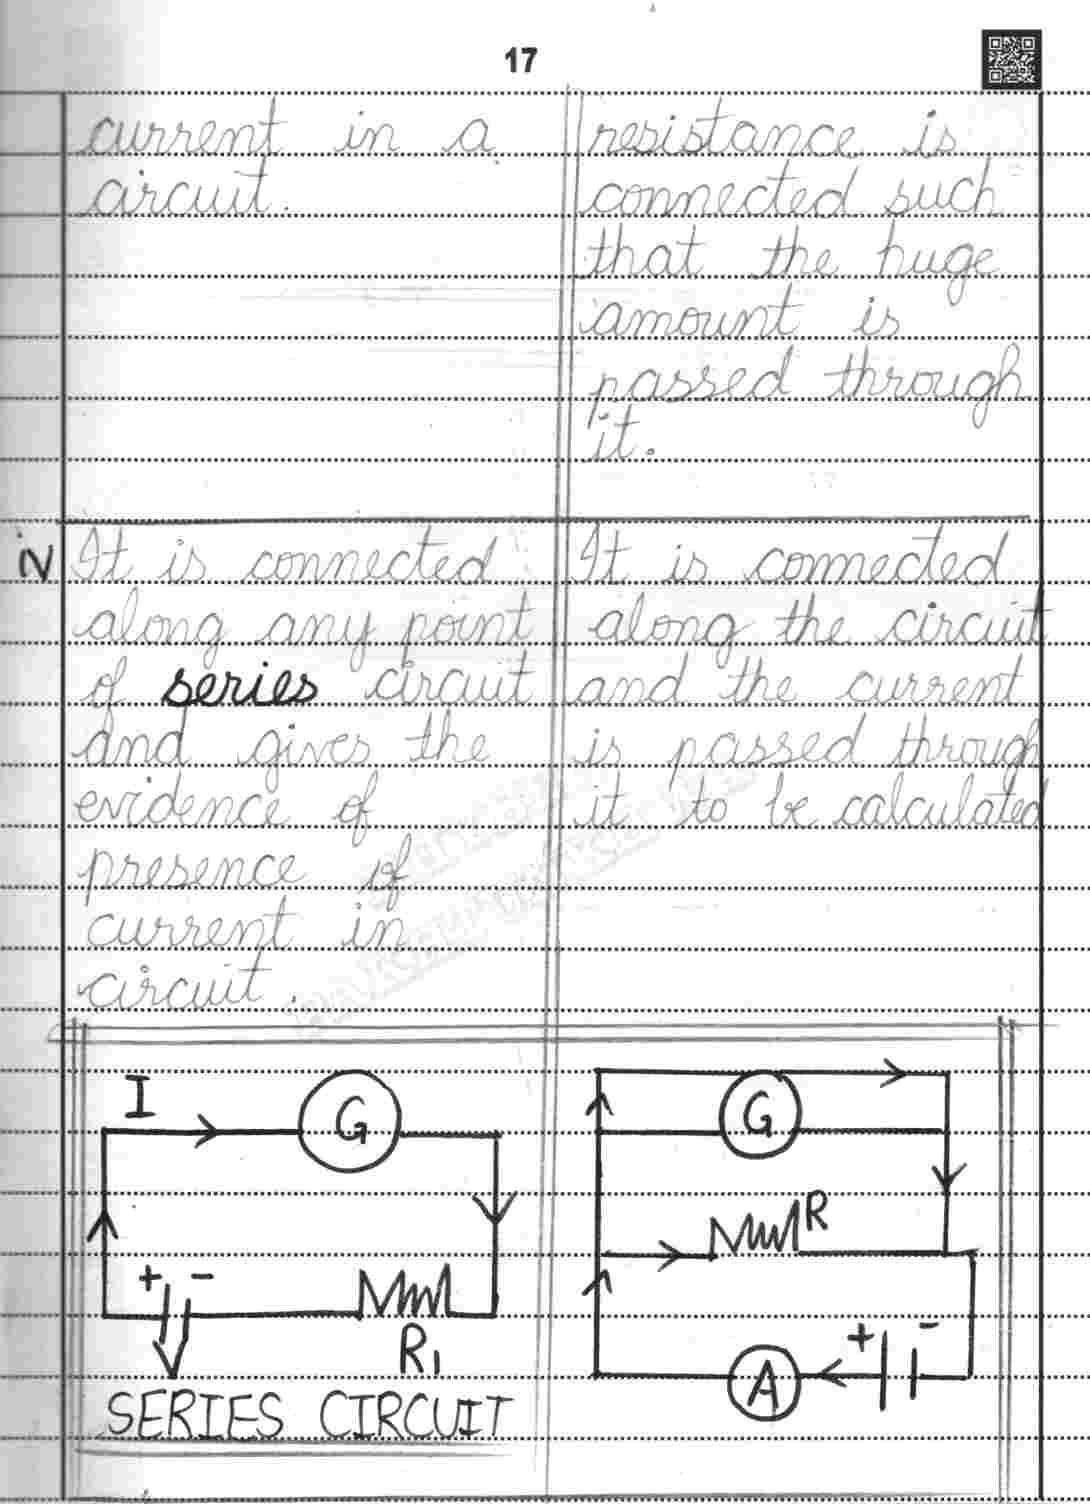 17
current in a
circuit.
resistance is
connected such
that the huge
amount is
passed through
it.
2
It is connected
along any point
of series circuit
and gives the
evidence of
presence of
current in
circuit.
It is connected
along the circuit
and the current
is passed through
it to be calculated
I
G
+ -
R1
SERIES CIRCUIT
G
R
A
+ -